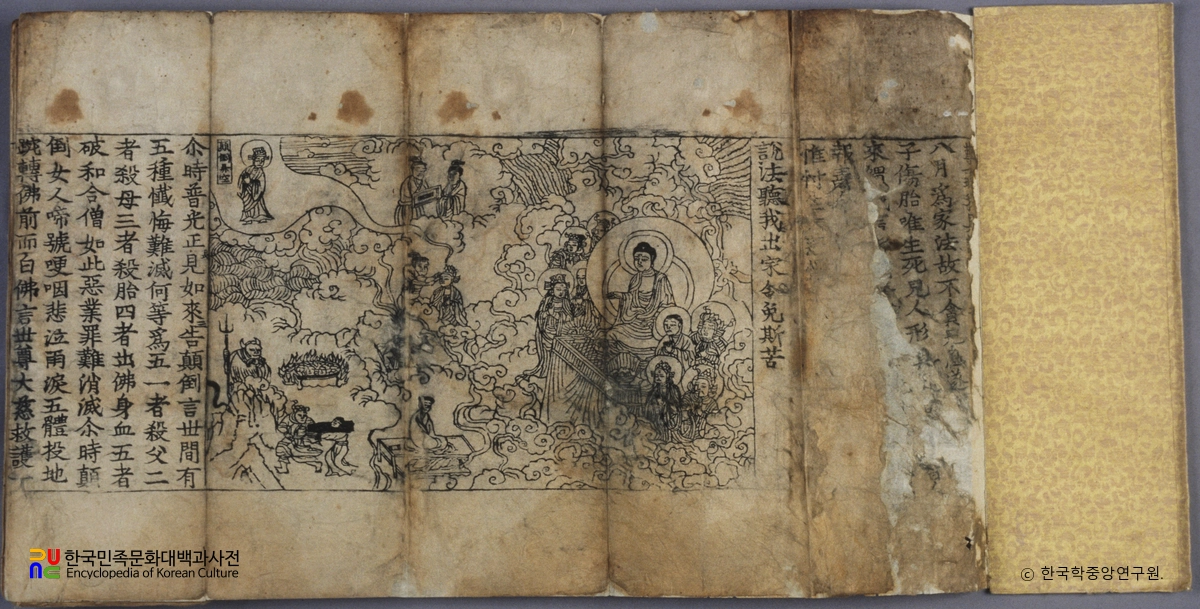 八月爲家法故不貪
子傷胎唯生死兒人形具
說法聽我出家令免斯苦
尒時普光正見如來告顛倒言世間有
五種懺悔難滅何等爲五一者殺父二
者殺母三者殺胎四者出佛身血五者
破和合僧如此惡業罪難消滅尒時顛
倒女人啼號哽咽悲泣雨淚五體投地
轉佛前而白佛言世尊大慈救護
한국민족문화대백과사전
Encyclopedia of Korean Culture
ⓒ 한국학중앙연구원.